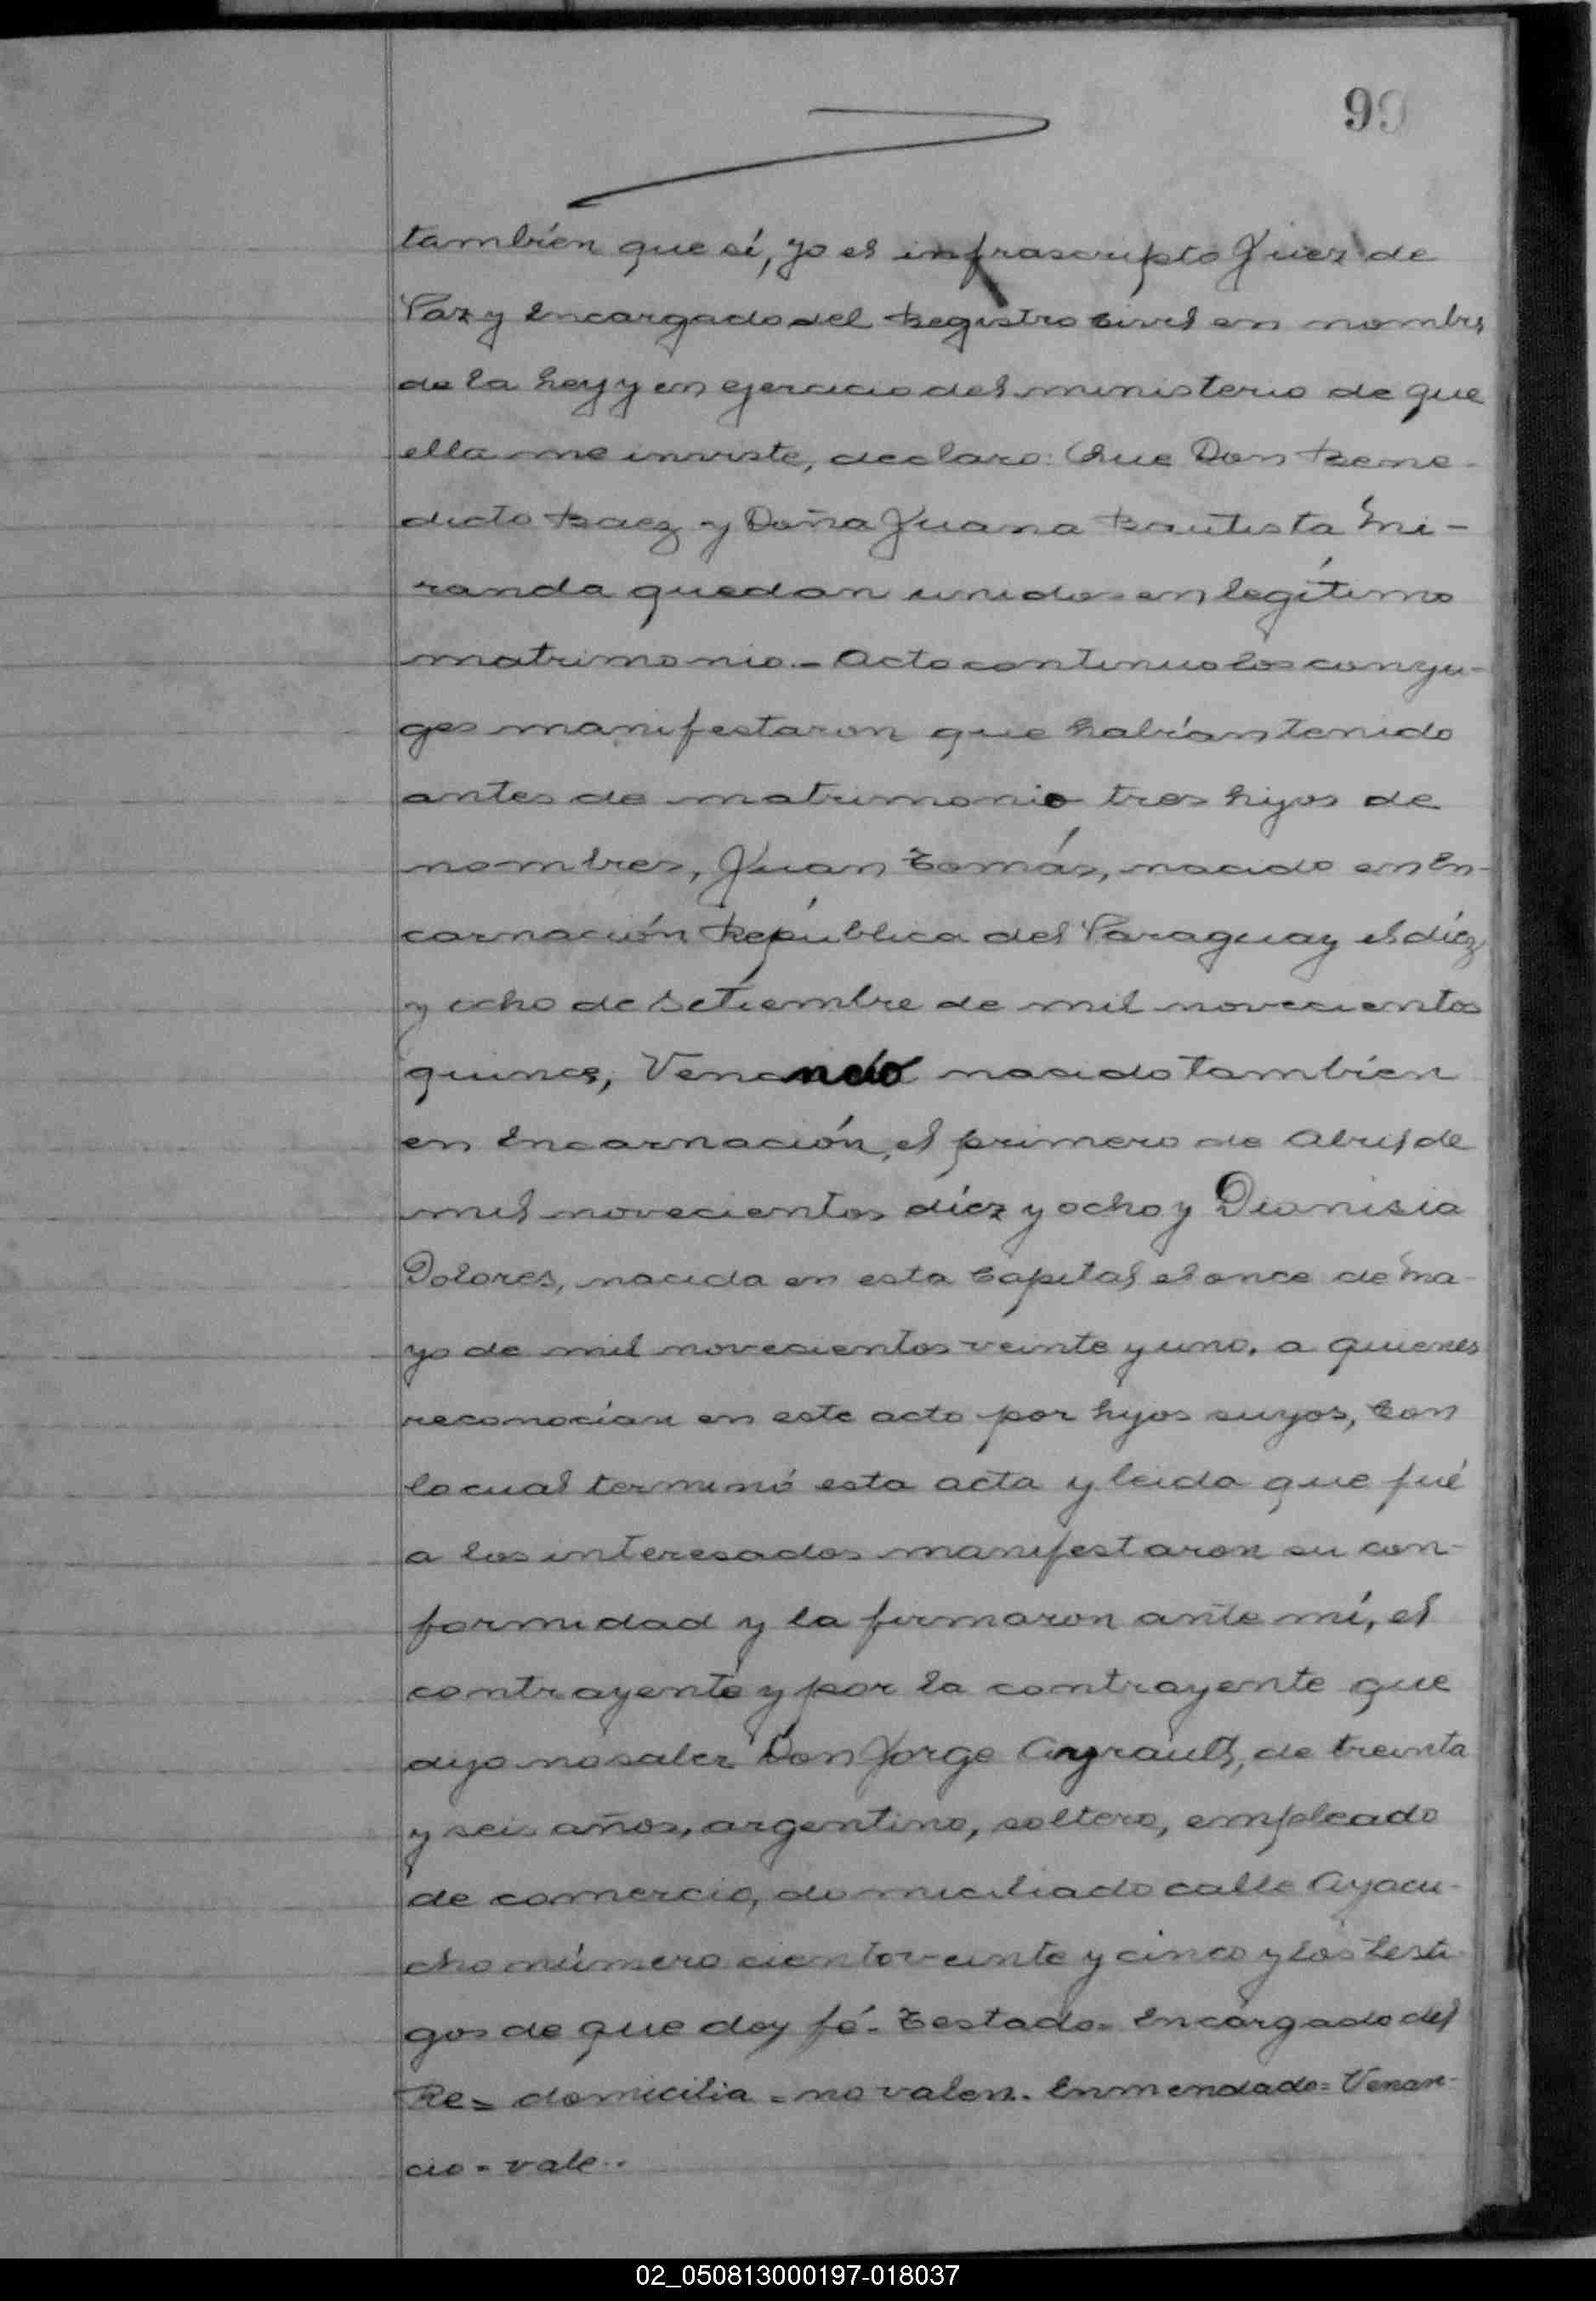 99
también que sí, yo el infrascripto Juez de
Paz y Encargado del Registro Civil en nombre
de la Ley y en ejercicio del ministerio de que
ella me inviste, declaro: Que Don Bene-
dicto Baez y Doña Juana Bautista Mi-
randa quedan unidos en legítimo
matrimonio.- Acto continuo los conyu-
ges manifestaron que habían tenido
antes de matrimonio tres hijos de
nombres, Juan Tomás, nacido en En-
carnación República del Paraguay el díez
y ocho de Setiembre de mil novecientos
quince, Venancio nacido también
en Encarnación, el primero de Abril de
mil novecientos díez y ocho y Dionisia
Dolores, nacida en esta Capital el once de Ma-
yo de mil novecientos veinte y uno. a quienes
reconocían en este acto por hijos suyos, Con
lo cual terminó esta acta y leida que fué
a los interesados manifestaron su con-
formidad y la firmaron ante mí, el
contrayente y por la contrayente que
dijo no saber Don Jorge Ayrault, de treinta
y seis años, argentino, soltero, empleado
de comercio, domiciliado calle Ayacu-
cho número ciento veinte y cinco y los testi-
gos de que doy fé.- Testado= Encargado del
Re= domicilia = no valen. Enmendado= Venan-
cio = vale..
02_050813000197-018037